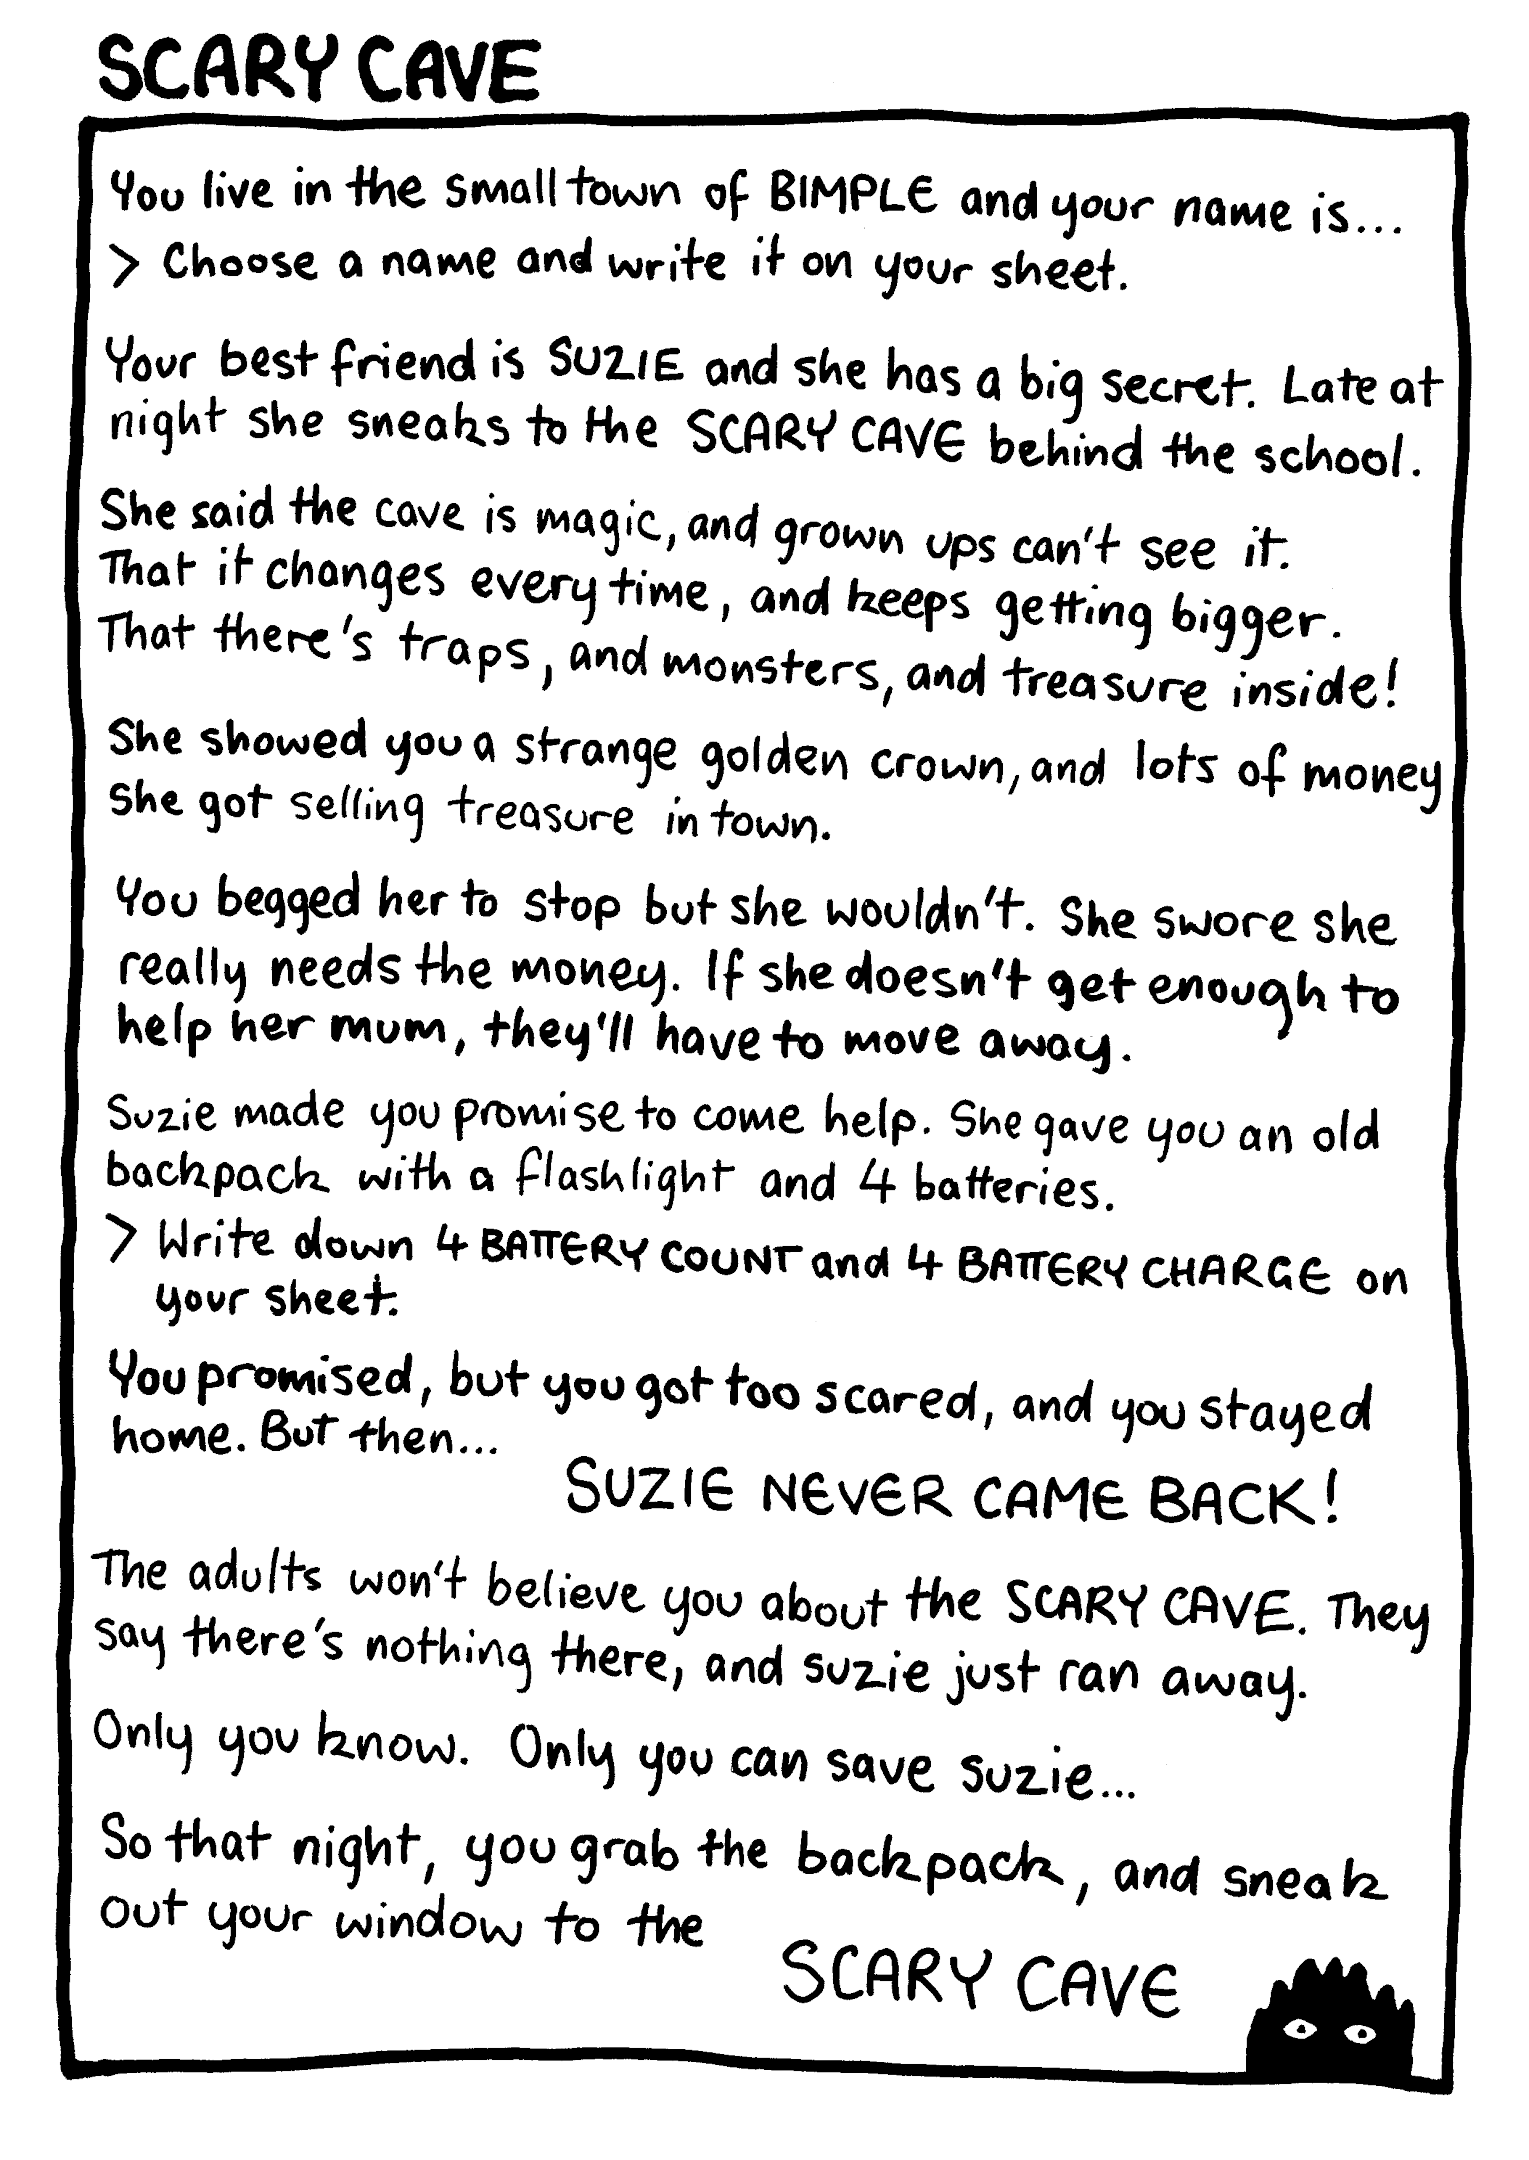 SCARY CAVE
You live in the small town of BIMPLE and your name is...
> Choose a name and write it on your sheet.
Your best friend is SUZIE and she has a big secret. Late at
night she sneaks to the SCARY CAVE behind the school.
She said the cave is magic, and grown ups can't see it.
That it changes every time, and keeps getting bigger.
That there's traps, and monsters, and treasure inside!
She showed you a strange golden crown, and lots of money
she got selling treasure in town.
You begged her to stop but she wouldn't. She swore she
really needs the money. If she doesn't get enough to
help her mum, they'll have to move away.
Suzie made you promise to come help. She gave you an old
backpack with a flashlight and 4 batteries.
> Write down 4 BATTERY COUNT and 4 BATTERY CHARGE on
your sheet.
You promised, but you got too scared, and you stayed
home. But then...
SUZIE NEVER CAME BACK!
The adults won't believe you about the SCARY CAVE. They
say there's nothing there, and suzie just ran away.
Only you know. Only you can save suzie...
So that night, you grab the backpack, and sneak
out your window to the
SCARY CAVE